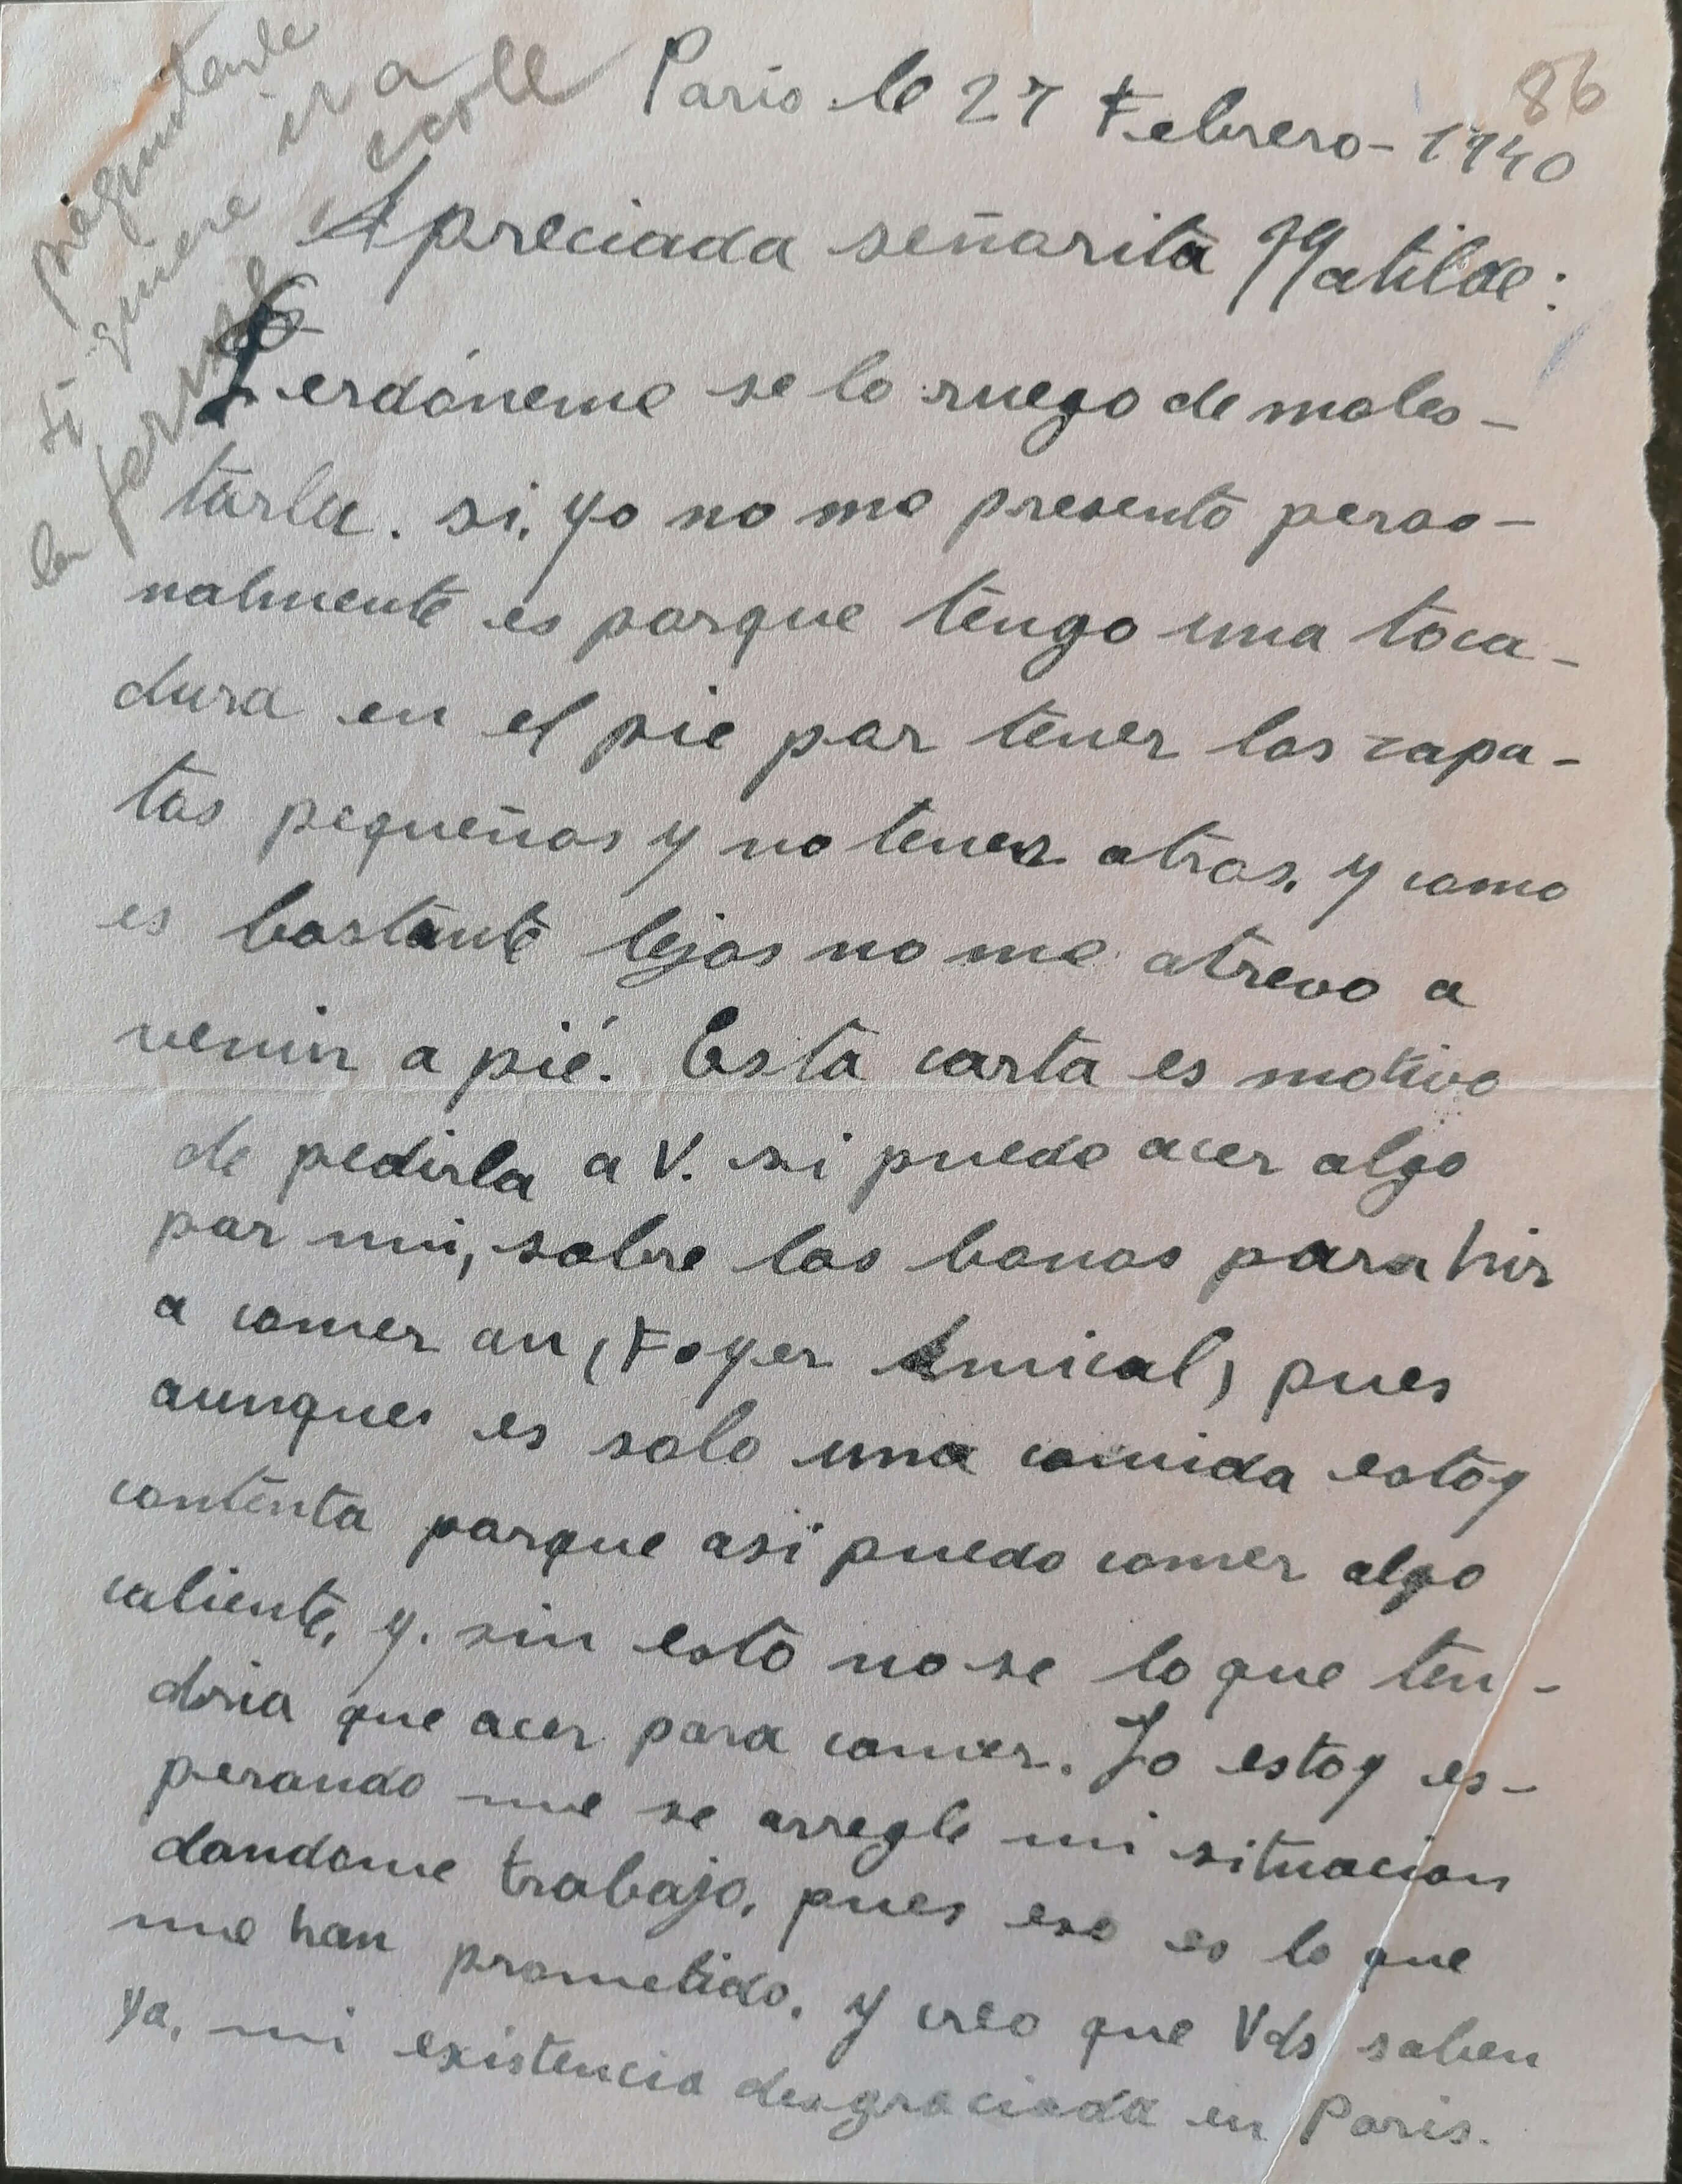 86
preguntarle
si quiere ir a
la ferme ecole
Paris le 27 Febrero-1940
Apreciada señorita Matilde:
Perdóneme se lo ruego de moles-
tarla. si, yo no me presento perso-
nalmente es porque tengo una toca-
dura en el pie por tener los zapa-
tos pequeños y no tener otros, y como
es bastante lejos no me atrevo a
venir a pié. Esta carta es motivo
de pedirla a V. si puede acer algo
por mi, sobre los bonos para hir
a comer au (Foyer Amical) pues
aunque es solo una comida estoy
contenta porque asi puedo comer algo
caliente, y. sin esto no se lo que ten-
dria que acer para comer. Yo estoy es-
perando me se arregle mi situacion
dandome trabajo, pues eso es lo que
me han prometido, y creo que Vds saben
ya, mi existencia desgraciada en Paris.